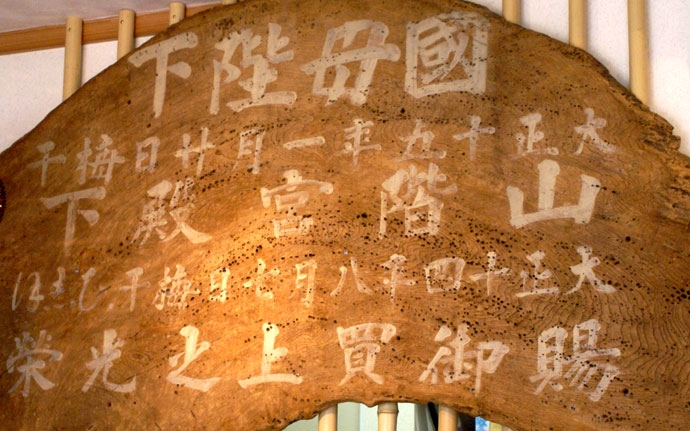 國毋陛下
大正十五年一月廿日梅干
山階宮殿下
大正十四年八月七日梅干
賜御買上之光榮